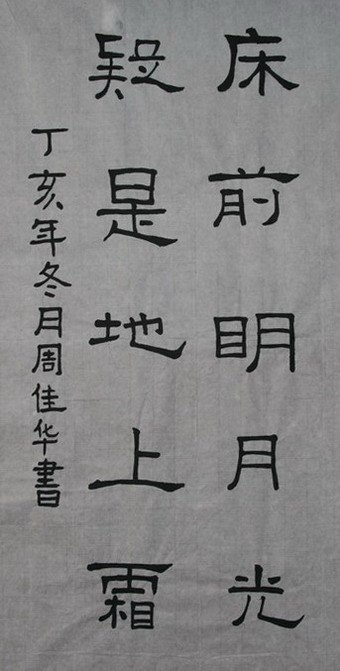 床前明月光
疑是地上霜
丁亥年冬月周佳华書